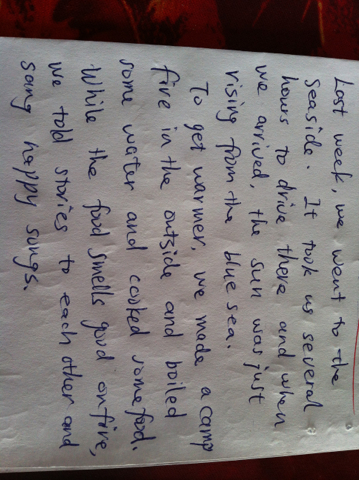 Last week, we went to the
seaside. It took us several
hours to drive there and when
we arrived, the sun was just
rising from the blue sea.
To get warmer, we made a camp
fire in the outside and boiled
some water and cooked some food.
While the food smells good on fire,
we told stories to each other and
sang happy songs.